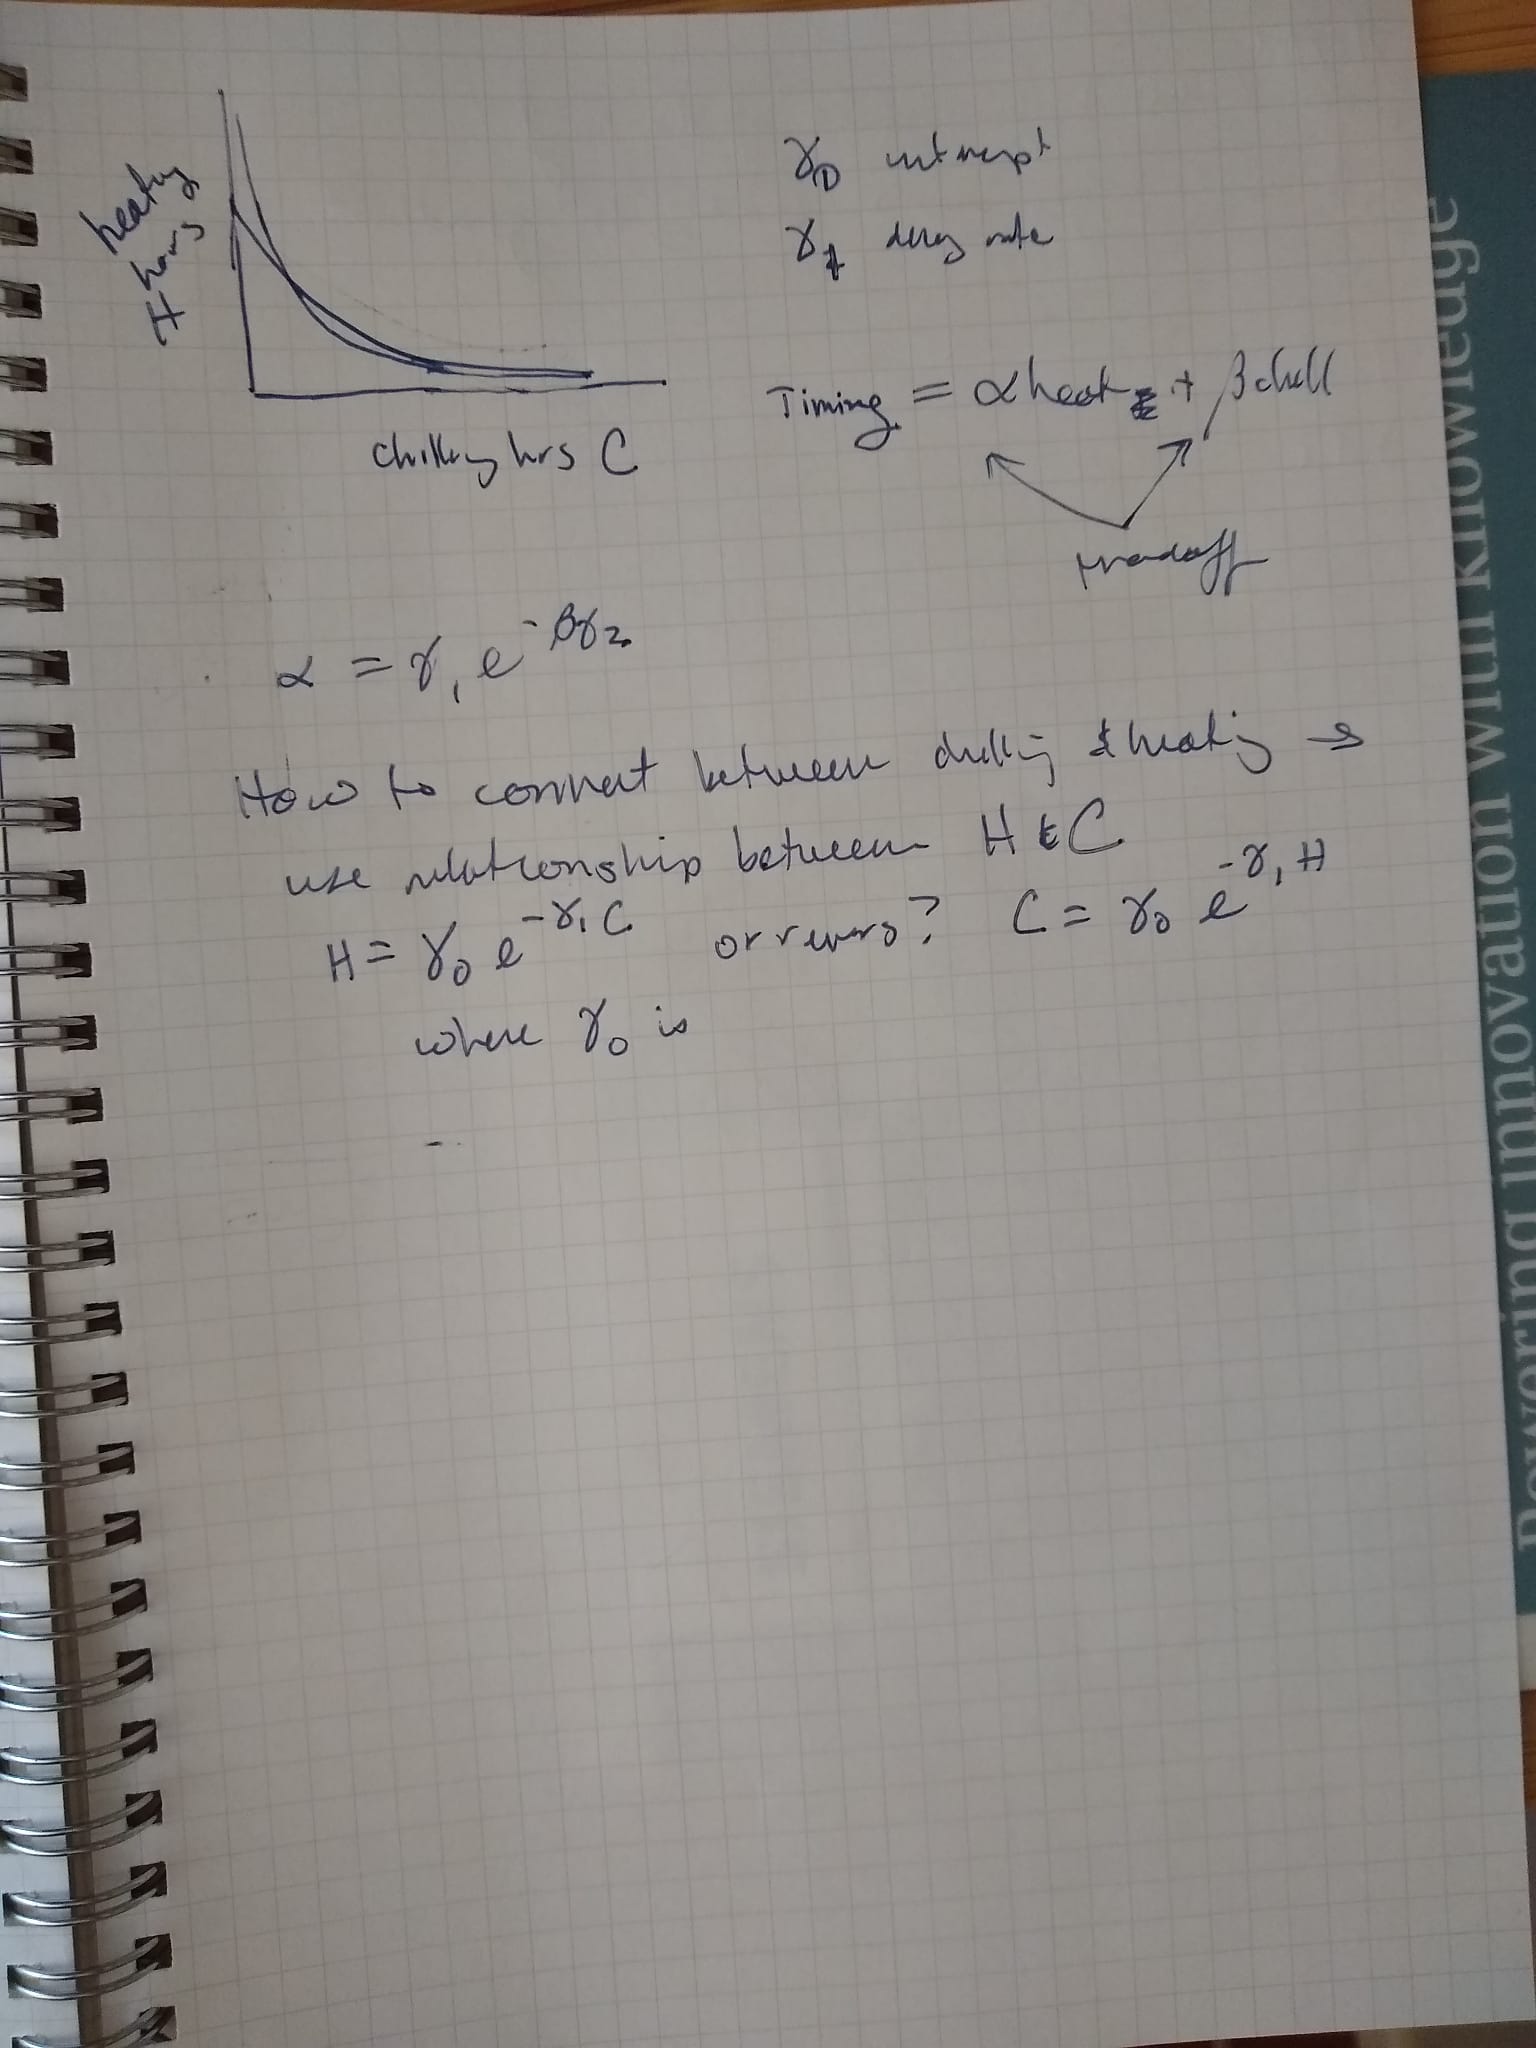 heating
hours
H
chilling hrs C
γ₀ intercept
γ₁ decay rate
Timing = αheat + βchill
tradeoff
α = γ₁ e^-βγ₂
How to convert between chilling & heating →
use relationship between H & C
H = γ₀ e^-γ₁C or revers? C = γ₀ e^-γ₁H
where γ₀ is
Powering innovation with knowledge